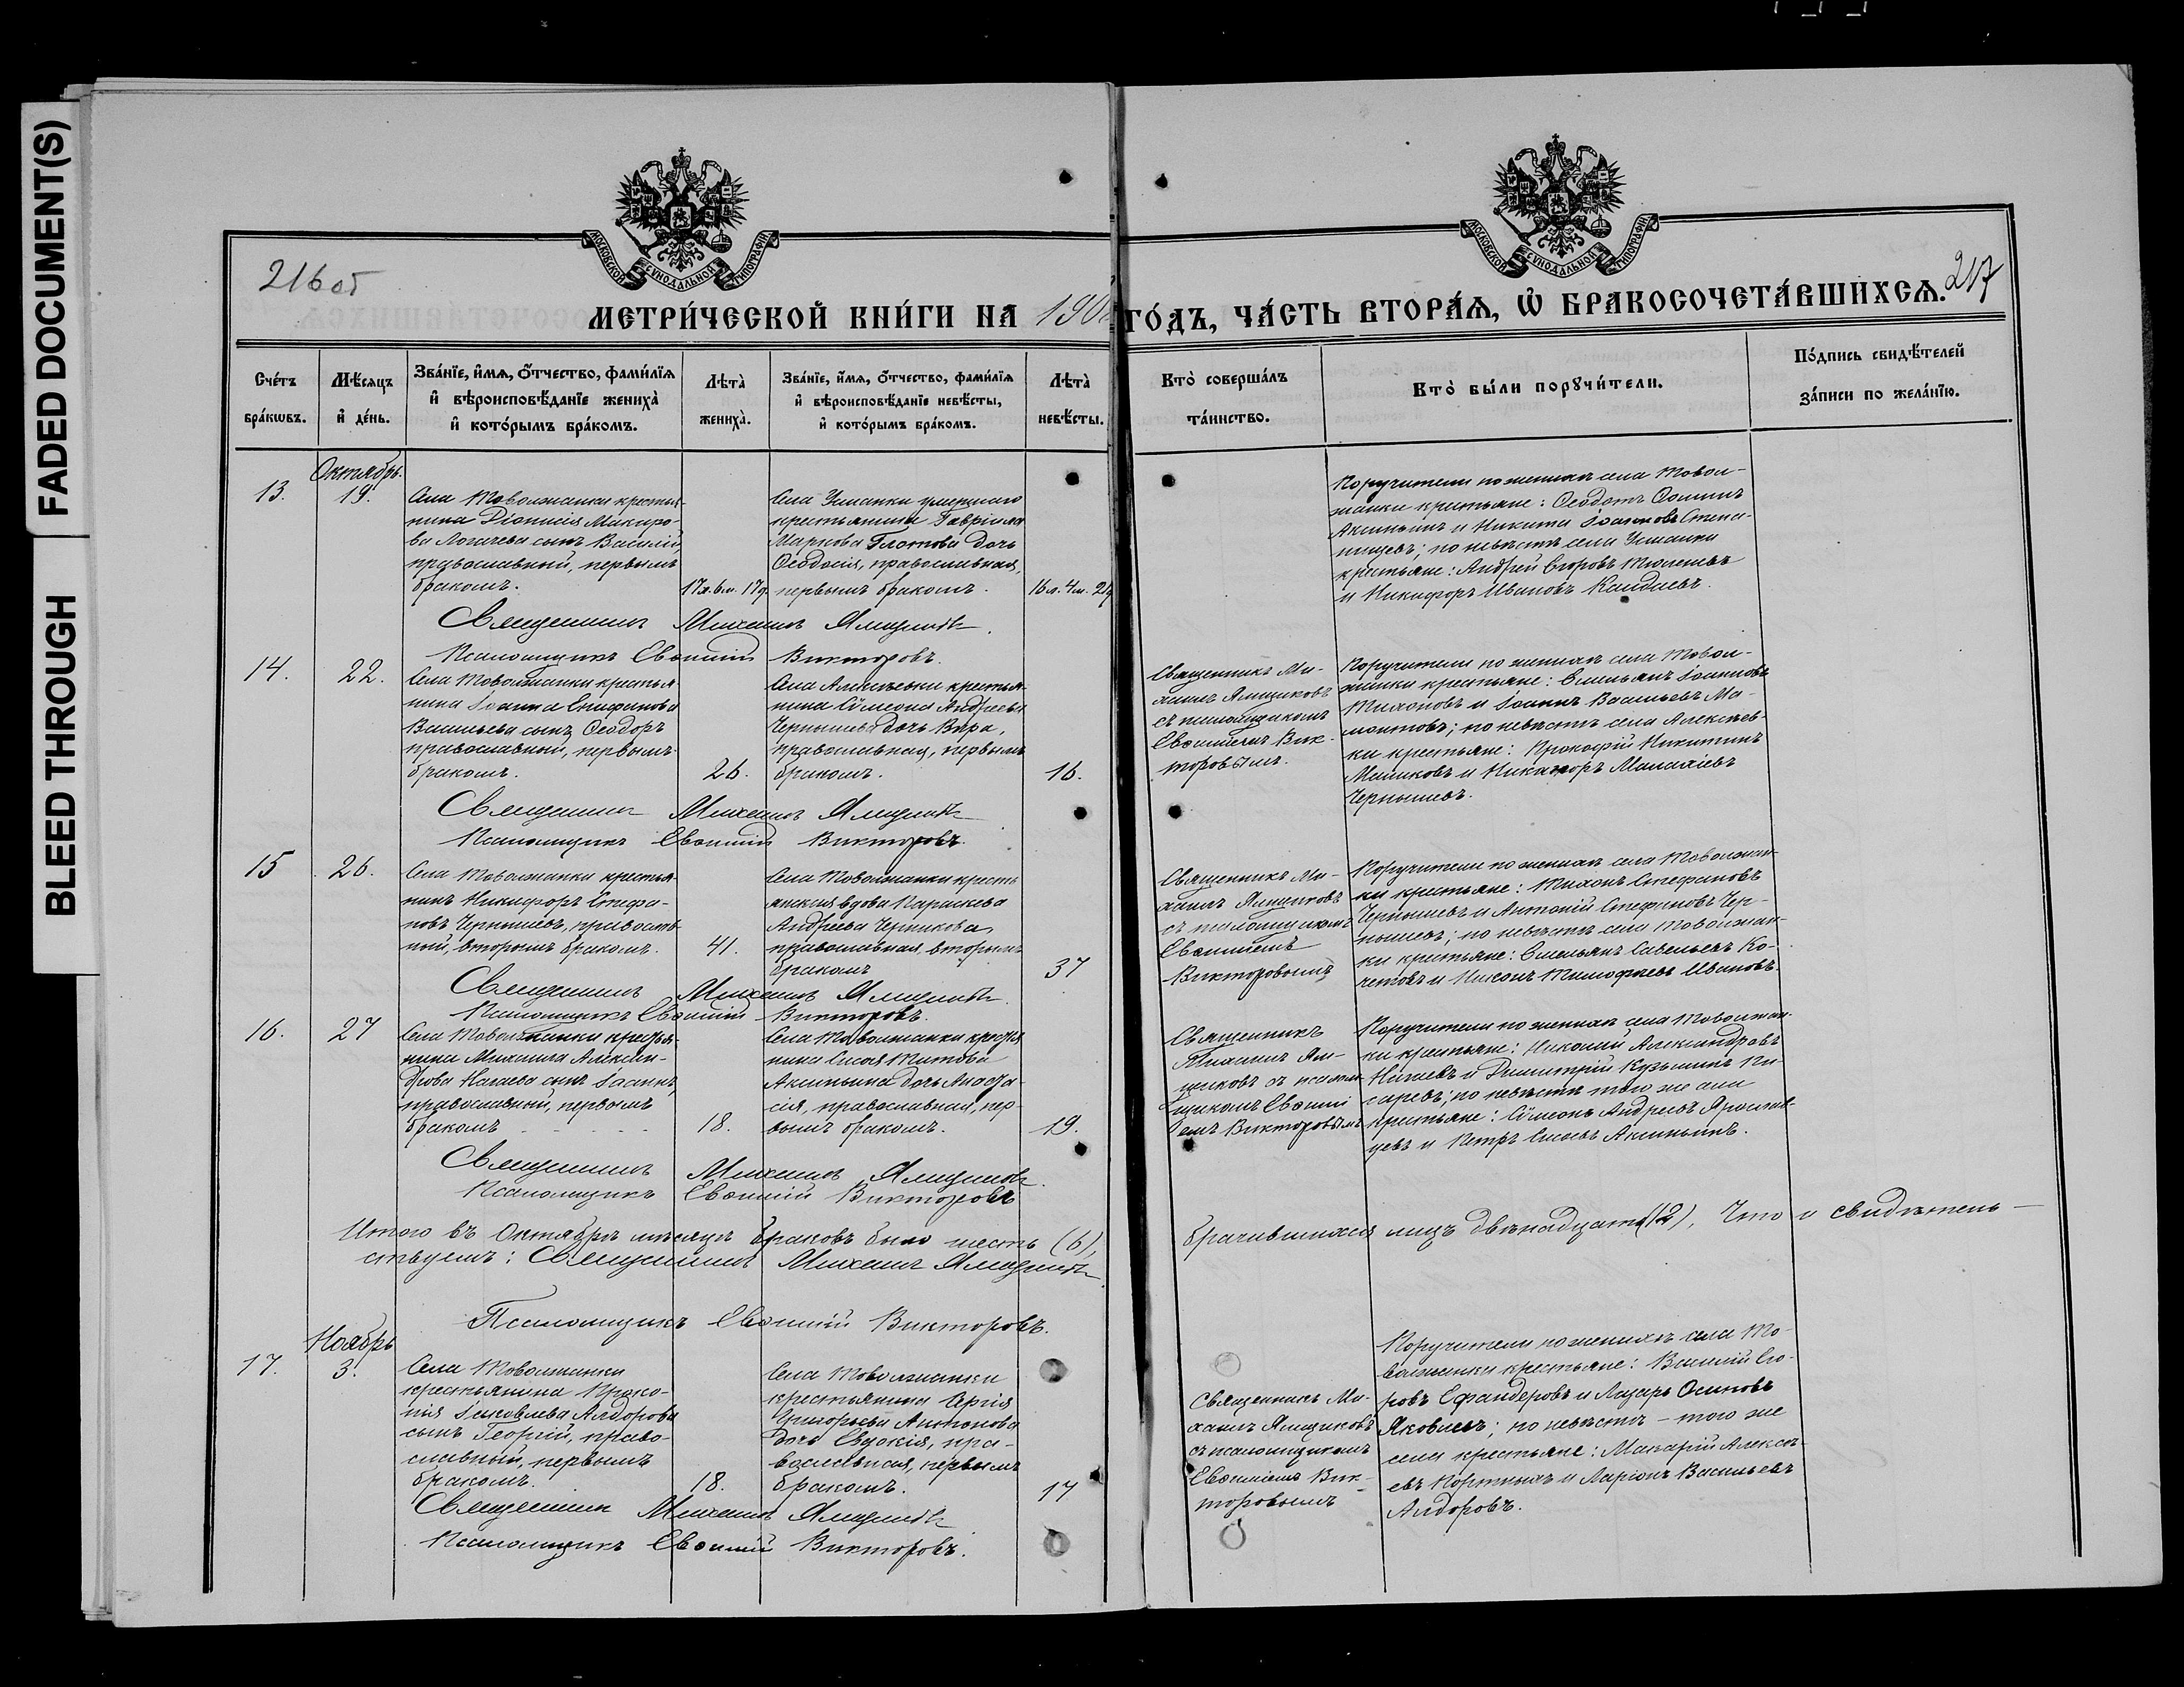 BLEED THROUGH
FADED DOCUMENT(S)
216 об
217
МОСКОВСКОЙ СѴНОДАЛЬНОЙ ТИПОГРАФІИ
МОСКОВСКОЙ СѴНОДАЛЬНОЙ ТИПОГРАФІИ
МЕТРИ́ЧЕСКОЙ КНИ́ГИ НА 190 ГО́ДЪ, ЧА́СТЬ ВТОРА́Ѧ, Ѡ БРАКОСОЧЕТА́ВШИХСѦ.
Сче́тъ
бра́кѡвъ.
Мѣ́сяцъ
и҆ де́нь.
Зва́нїе, и҆́мѧ, ѻ҆́тчество, фами́лїѧ
и҆ вѣроисповѣ́данїе жениха̀
и҆ кото́рымъ бра́комъ.
Лѣта̀
жениха̀.
Зва́нїе, и҆́мѧ, ѻ҆́тчество, фами́лїѧ
и҆ вѣроисповѣ́данїе невѣ́сты,
и҆ кото́рымъ бра́комъ.
Лѣта̀
невѣ́сты.
Кто̀ соверша́лъ
та́инство.
Кто̀ бы́ли порꙋчи́тели.
По́дпись свидѣ́телей
за́писи по жела́нїю.
Октябрь.
13.
19.
Села Товолжанки крестья-
нина Діонисія Макаро-
ва Логачева сынъ Василій,
православный, первымъ
бракомъ.
17 л. 6 м. 17 д.
Села Усманки умершаго
крестьянина Гавріила
Маркова Глотова дочь
Ѳеодосія, православная,
первымъ бракомъ.
16 л. 4 м. 2 д
Поручители по женихѣ села Товол-
жанки крестьяне: Ѳеодотъ Ѳоминъ
Аксиньинъ и Никита Іоанновъ Степа-
нищевъ; по невѣстѣ села Усманки
крестьяне: Андрей Егоровъ Тюленевъ
и Никифоръ Ивановъ Кандаевъ.
Священникъ Михаилъ Ямщиковъ.
Псаломщикъ Евѳимій Викторовъ.
14.
22.
Села Товолжанки крестья-
нина Іоанна Епифанова
Васильева сынъ Ѳеодоръ
православный, первымъ
бракомъ.
26.
Села Алексѣевки крестья-
нина Сѵмеона Андреева
Чернышева дочь Вѣра,
православная, первымъ
бракомъ.
16.
Священникъ Ми-
хаилъ Ямщиковъ
съ псаломщикомъ
Евѳиміемъ Вик-
торовымъ.
Поручители по женихѣ села Товол-
жанки крестьяне: Емельянъ Іоанновъ
Тихоновъ и Іоаннъ Васильевъ Ма-
монтовъ; по невѣстѣ села Алексѣев-
ки крестьяне: Прокофій Никитинъ
Машковъ и Никифоръ Малахіевъ
Чернышевъ.
Священникъ Михаилъ Ямщиковъ
Псаломщикъ Евѳимій Викторовъ.
15
26.
Села Товолжанки крестья-
нинъ Никифоръ Стефа-
новъ Чернышевъ, православ-
ный, вторымъ бракомъ.
41.
Села Товолжанки кресть
янская вдова Параскева
Андреева Черникова,
православная, вторымъ
бракомъ
37
Священникъ Ми-
хаилъ Ямщиковъ
съ псаломщикомъ
Евѳиміемъ
Викторовымъ
Поручители по женихѣ села Товолжан-
ки крестьяне: Тихонъ Стефановъ
Чернышевъ и Антоній Стефановъ Чер-
нышевъ; по невѣстѣ села Товолжан-
ки крестьяне: Емельянъ Савельевъ Ко-
четовъ и Никонъ Тимофѣевъ Ивановъ.
Священникъ Михаилъ Ямщиковъ.
Псаломщикъ Евѳимій Викторовъ.
16.
27
Села Товолжанки крестья-
нина Михаила Алексан-
дрова Нагаева сынъ Іоаннъ,
православный, первымъ
бракомъ
18.
Села Товолжанки крестья
нина Сысоя Титова
Аксиньина дочь Анаста-
сія, православная, пер-
вымъ бракомъ.
19.
Священникъ
Михаилъ Ям-
щиковъ съ псалом-
щикомъ Евѳимі
емъ Викторовымъ
Поручители по женихѣ села Товолжан-
ки крестьяне: Николай Александровъ
Нагаевъ и Димитрій Кузьминъ Пи-
саревъ; по невѣстѣ того же села
крестьяне: Сѵмеонъ Андреевъ Ярослав-
цевъ и Петръ Сысоевъ Аксиньинъ.
Священникъ Михаилъ Ямщиковъ.
Псаломщикъ Евѳимій Викторовъ
Итого въ Октябрѣ мѣсяцѣ браковъ было шесть (6), брачившихся лицъ двѣнадцать (12), Что и свидѣтель-
ствуемъ: Священникъ Михаилъ Ямщиковъ
Псаломщикъ Евѳимій Викторовъ.
Ноябрь
17.
3.
Села Товолжанки
крестьянина Проко-
пія Іаковлева Алдорова
сынъ Георгій, право-
славный, первымъ
бракомъ.
18.
Села Товолжанки
крестьянина Сергія
Григорьева Антонова
дочь Евдокія, пра-
вославная, первымъ
бракомъ.
17
Священникъ Ми-
хаилъ Ямщиковъ
съ псаломщикомъ
Евѳиміемъ Вик-
торовымъ
Поручители по женихѣ села То-
волжанки крестьяне: Василій Его-
ровъ Ефандеровъ и Лазарь Осиповъ
Яковлевъ; по невѣстѣ - того же
села крестьяне: Макарій Алексѣ-
евъ Кортныхъ и Ларіонъ Васильевъ
Алдоровъ.
Священникъ Михаилъ Ямщиковъ
Псаломщикъ Евѳимій Викторовъ.